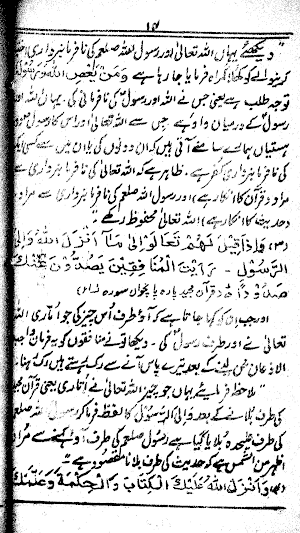 ۱۴
"دیکھئے یہاں اللہ تعالیٰ اور رسول اللہ صلعم کی نافرمانبرداری اختیار
کرنیوالے کو کھلا گمراہ فرمایا جا رہا ہے وَمَنْ يَعْصِ اللهَ وَرَسُوْلَهُ
توجہ طلب ہے یعنی جس نے اللہ اور رسول کی نافرمانی کی۔ یہاں اللہ اور
رسول کے درمیان واو ہے جس سے اللہ تعالیٰ اور اس کا رسول دو
ہستیاں ہمارے سامنے آتی ہیں کہ ان دونوں کی یا ان میں سے کسی ایک
کی نافرمانبرداری کفر ہے۔ ظاہر ہے کہ اللہ تعالیٰ کی نافرمانبرداری سے
مراد (قرآن کا انکار ہے) اور رسول اللہ صلعم کی نافرمانبرداری سے مراد
(حدیث کا انکار ہے) اللہ تعالیٰ محفوظ رکھے"
(۳) وَاِذَا قِيْلَ لَهُمْ تَعَالَوْا اِلٰى مَآ اَنْزَلَ اللهُ وَاِلَى
الرَّسُوْلِ - رَاَيْتَ الْمُنَافِقِيْنَ يَصُدُّوْنَ عَنْكَ
صُدُوْدًا ۵ (قرآن مجید پارہ پانچواں سورہ نساء)
اور جب ان کو کہا جاتا ہے کہ آؤ طرف اس چیز کی جو اتاری اللہ
تعالیٰ نے اور طرف رسول کی۔ دیکھا تو نے منافقوں کو یہ فرمان واجب
الاذعان سن لینے کے بعد تیرے پاس آنے سے رک رہتے ہیں رک رہنا۔
"ملاحظہ فرمایئے یہاں جو چیز اللہ تعالیٰ نے اتاری یعنی قرآن مجید
کی طرف بلانے کے بعد وَاِلَى الرَّسُوْلِ کا لفظ فرما کر رسول اللہ صلعم
کی طرف علیحدہ بلایا گیا ہے رسول صلعم کی طرف آؤ کہنے سے مراد
اظہر من الشمس ہے کہ حدیث کی طرف بلانا مقصود ہے"
(۴) وَاَنْزَلَ اللهُ عَلَيْكَ الْكِتَابَ وَالْحِكْمَةَ وَعَلَّمَكَ